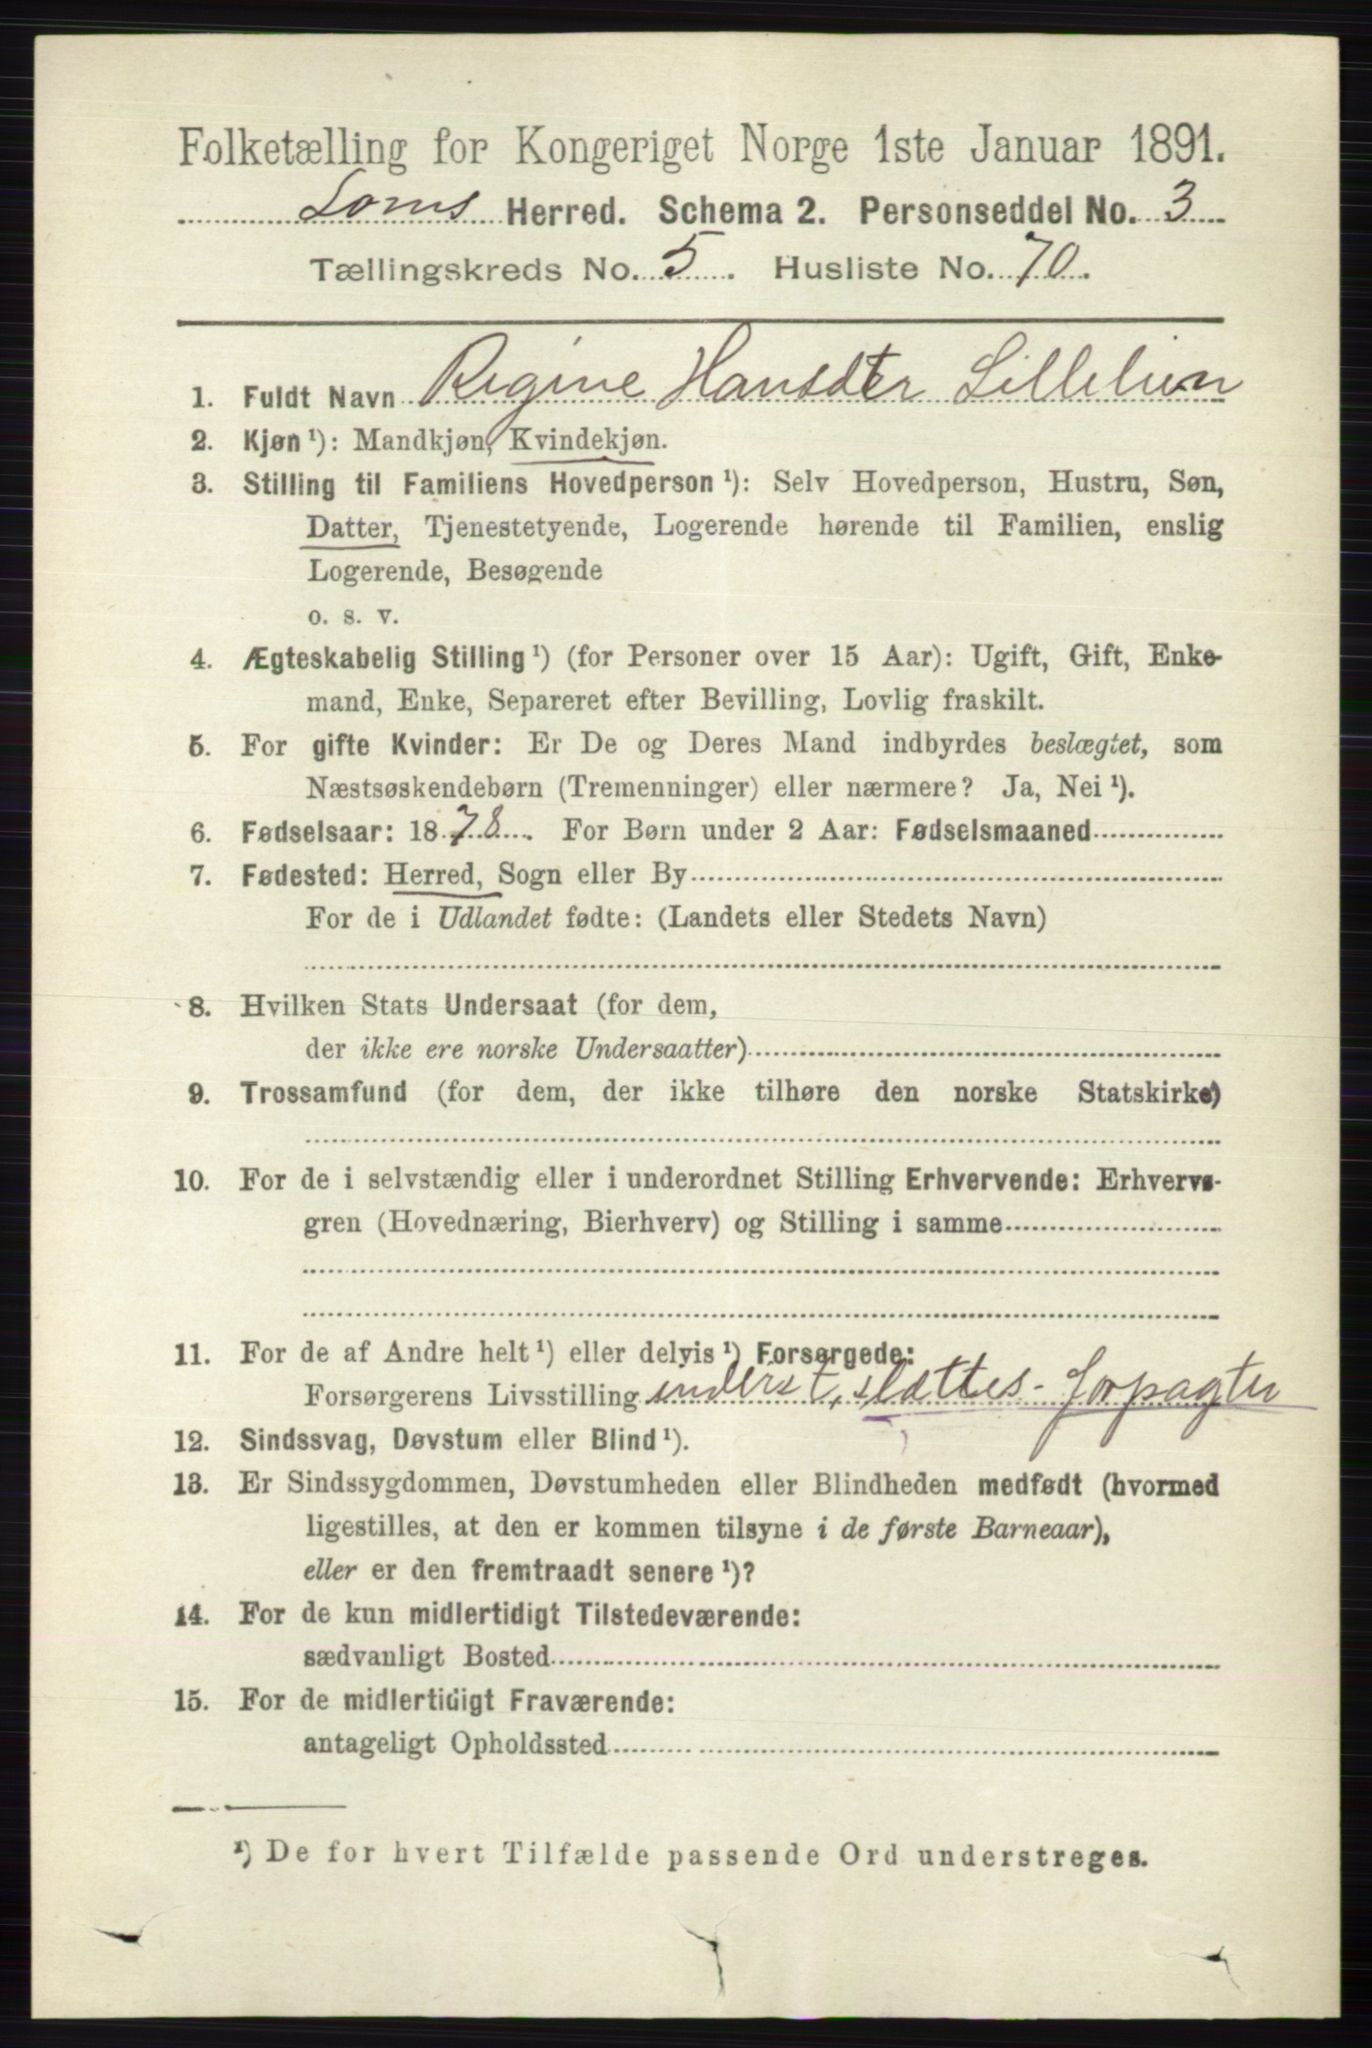 Folketælling for Kongeriget Norge 1ste Januar 1891.
Loms Herred. Schema 2. Personseddel No. 3
Tællingskreds No. 5. Husliste No. 70.
1. Fuldt Navn Regine Hansdter Lillelien
2. Kjøn ¹): Mandkjøn, Kvindekjøn.
3. Stilling til Familiens Hovedperson ¹): Selv Hovedperson, Hustru, Søn,
Datter, Tjenestetyende, Logerende hørende til Familien, enslig
Logerende, Besøgende
o. s. v.
4. Ægteskabelig Stilling ¹) (for Personer over 15 Aar): Ugift, Gift, Enke-
mand, Enke, Separeret efter Bevilling, Lovlig fraskilt.
5. For gifte Kvinder: Er De og Deres Mand indbyrdes beslægtet, som
Næstsøskendebørn (Tremenninger) eller nærmere? Ja, Nei ¹).
6. Fødselsaar: 1878. For Børn under 2 Aar: Fødselsmaaned
7. Fødested: Herred, Sogn eller By
For de i Udlandet fødte: (Landets eller Stedets Navn)
8. Hvilken Stats Undersaat (for dem,
der ikke ere norske Undersaatter)
9. Trossamfund (for dem, der ikke tilhøre den norske Statskirke)
10. For de i selvstændig eller i underordnet Stilling Erhvervende: Erhvervs-
gren (Hovednæring, Bierhverv) og Stilling i samme
11. For de af Andre helt ¹) eller delvis ¹) Forsørgede:
Forsørgerens Livsstilling inderst, slættes-forpagter
12. Sindssvag, Døvstum eller Blind ¹).
13. Er Sindssygdommen, Døvstumheden eller Blindheden medfødt (hvormed
ligestilles, at den er kommen tilsyne i de første Barneaar),
eller er den fremtraadt senere ¹)?
14. For de kun midlertidigt Tilstedeværende:
sædvanligt Bosted
15. For de midlertidigt Fraværende:
antageligt Opholdssted
¹) De for hvert Tilfælde passende Ord understreges.